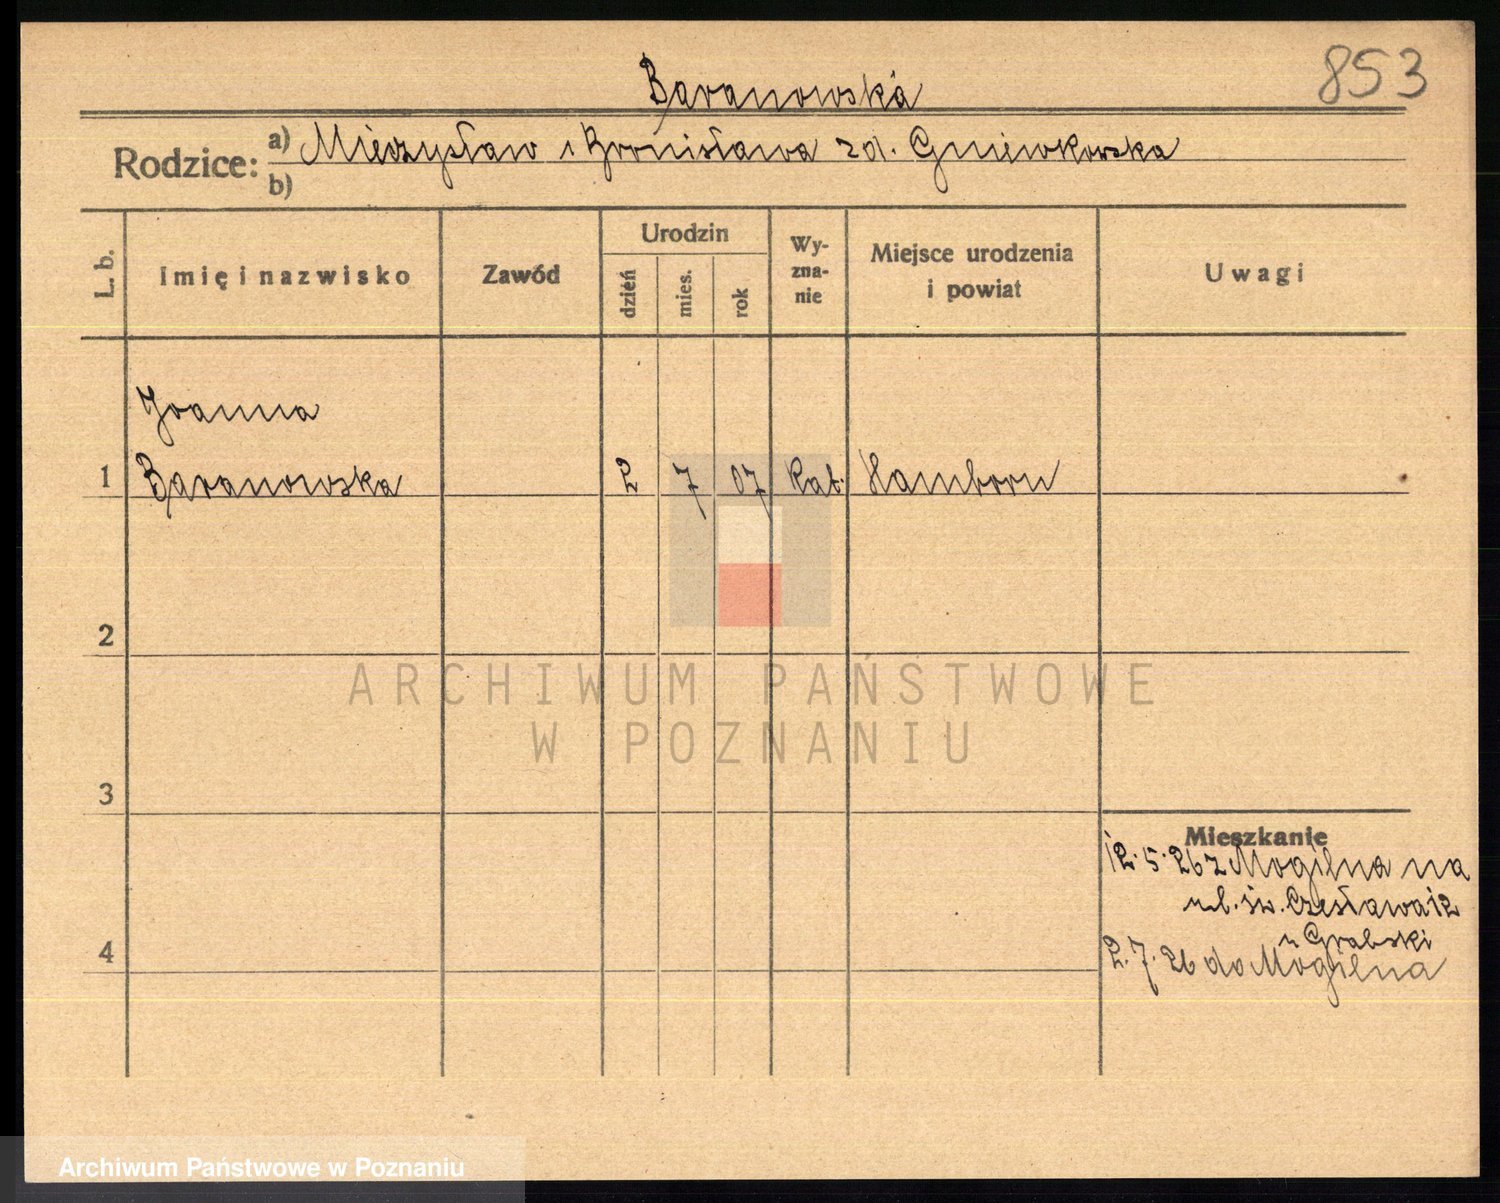 853
Baranowska
Rodzice: a) Mieczysław i Bronisława zd. Gniewkowska
b)
L. b.
Imię i nazwisko
Zawód
Urodzin
dzień
mies.
rok
Wy-
zna-
nie
Miejsce urodzenia
i powiat
Uwagi
Joanna
1 Baranowska 2 7 07 kat. Hamborn
2
ARCHIWUM PAŃSTWOWE
W POZNANIU
3
Mieszkanie
12.5.26 z Mogilna na
ul. św. Czesława 12
u Grabski
4
2.7.26 do Mogilna
Archiwum Państwowe w Poznaniu